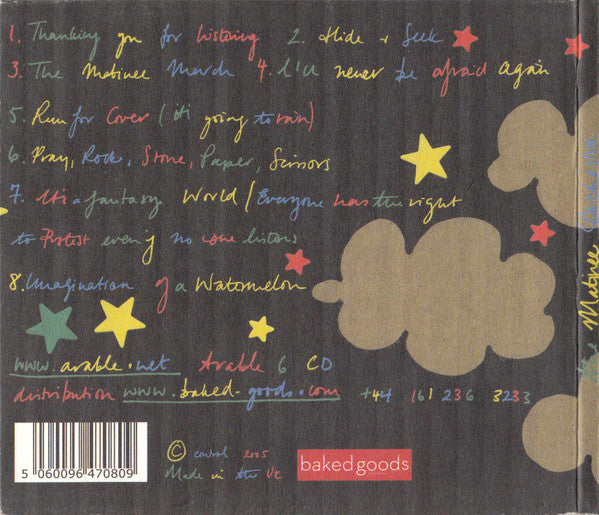 1. Thanking you for listening 2. Hide + Seek
3. The Matinee March 4. I'll never be afraid again
5. Run for Cover (it's going to rain)
6. Pray, Rock, Stone, Paper, Scissors
7. It's a fantasy World / Everyone has the right
to Protest even if no one listens
8. Imagination of a Watermelon
www.arable.net Arable 6 CD
distribution www.baked-goods.com +44 161 236 3233
5 060096 470809
© control 2005
Made in the UK
baked goods
The Matinee